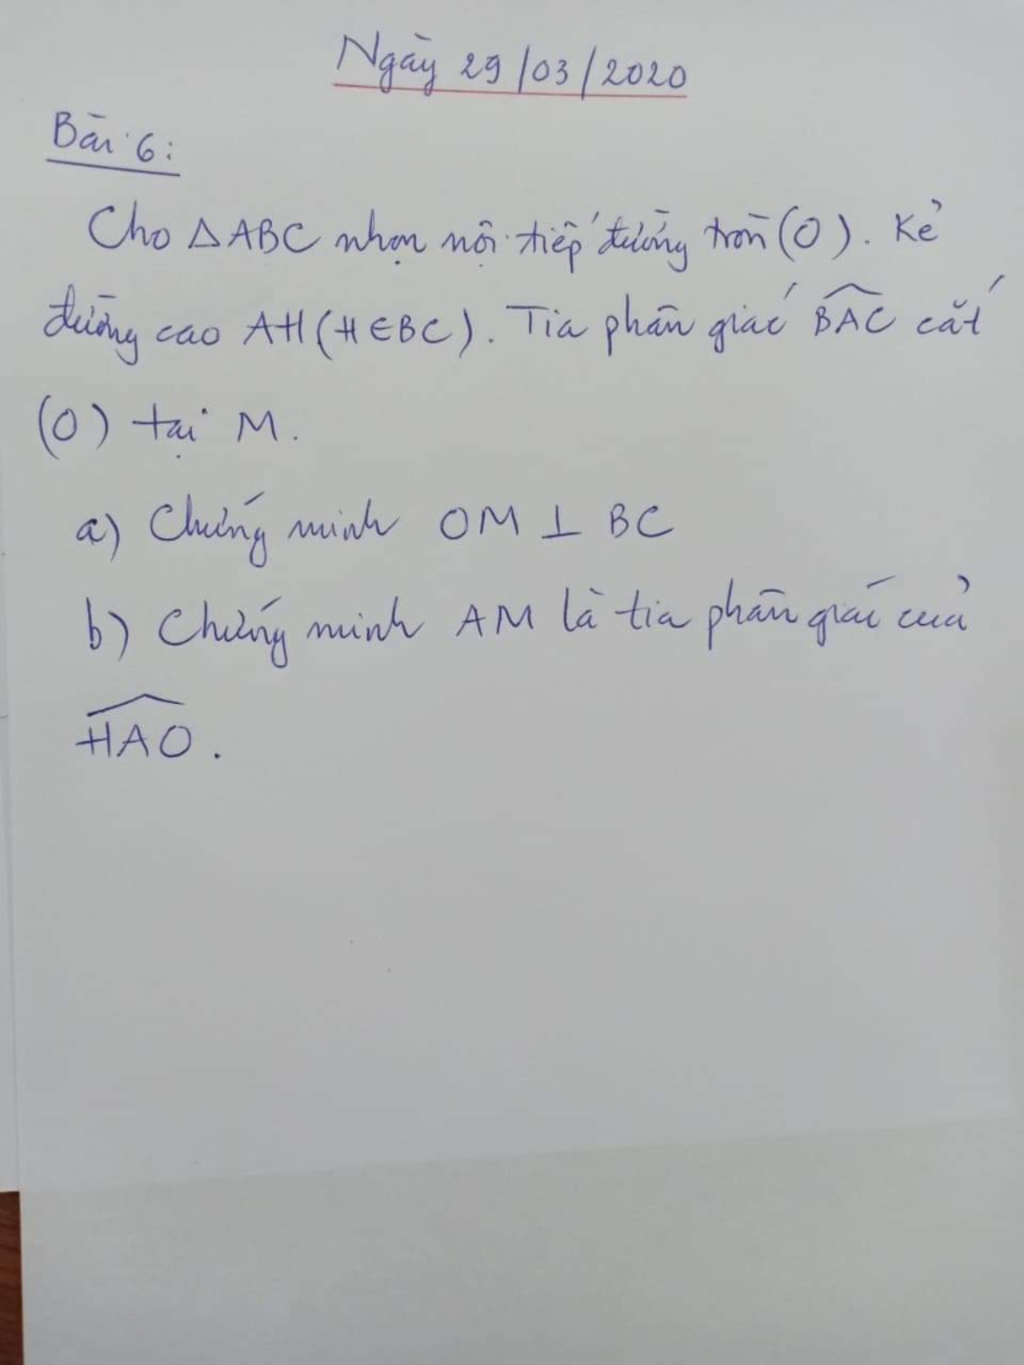 Ngày 29/03/2020
Bài 6:
Cho △ABC nhọn nội tiếp đường tròn (O). Kẻ
đường cao AH (H∈BC). Tia phân giác \widehat{BAC} cắt
(O) tại M.
a) Chứng minh OM ⊥ BC
b) Chứng minh AM là tia phân giác của
\widehat{HAO}.